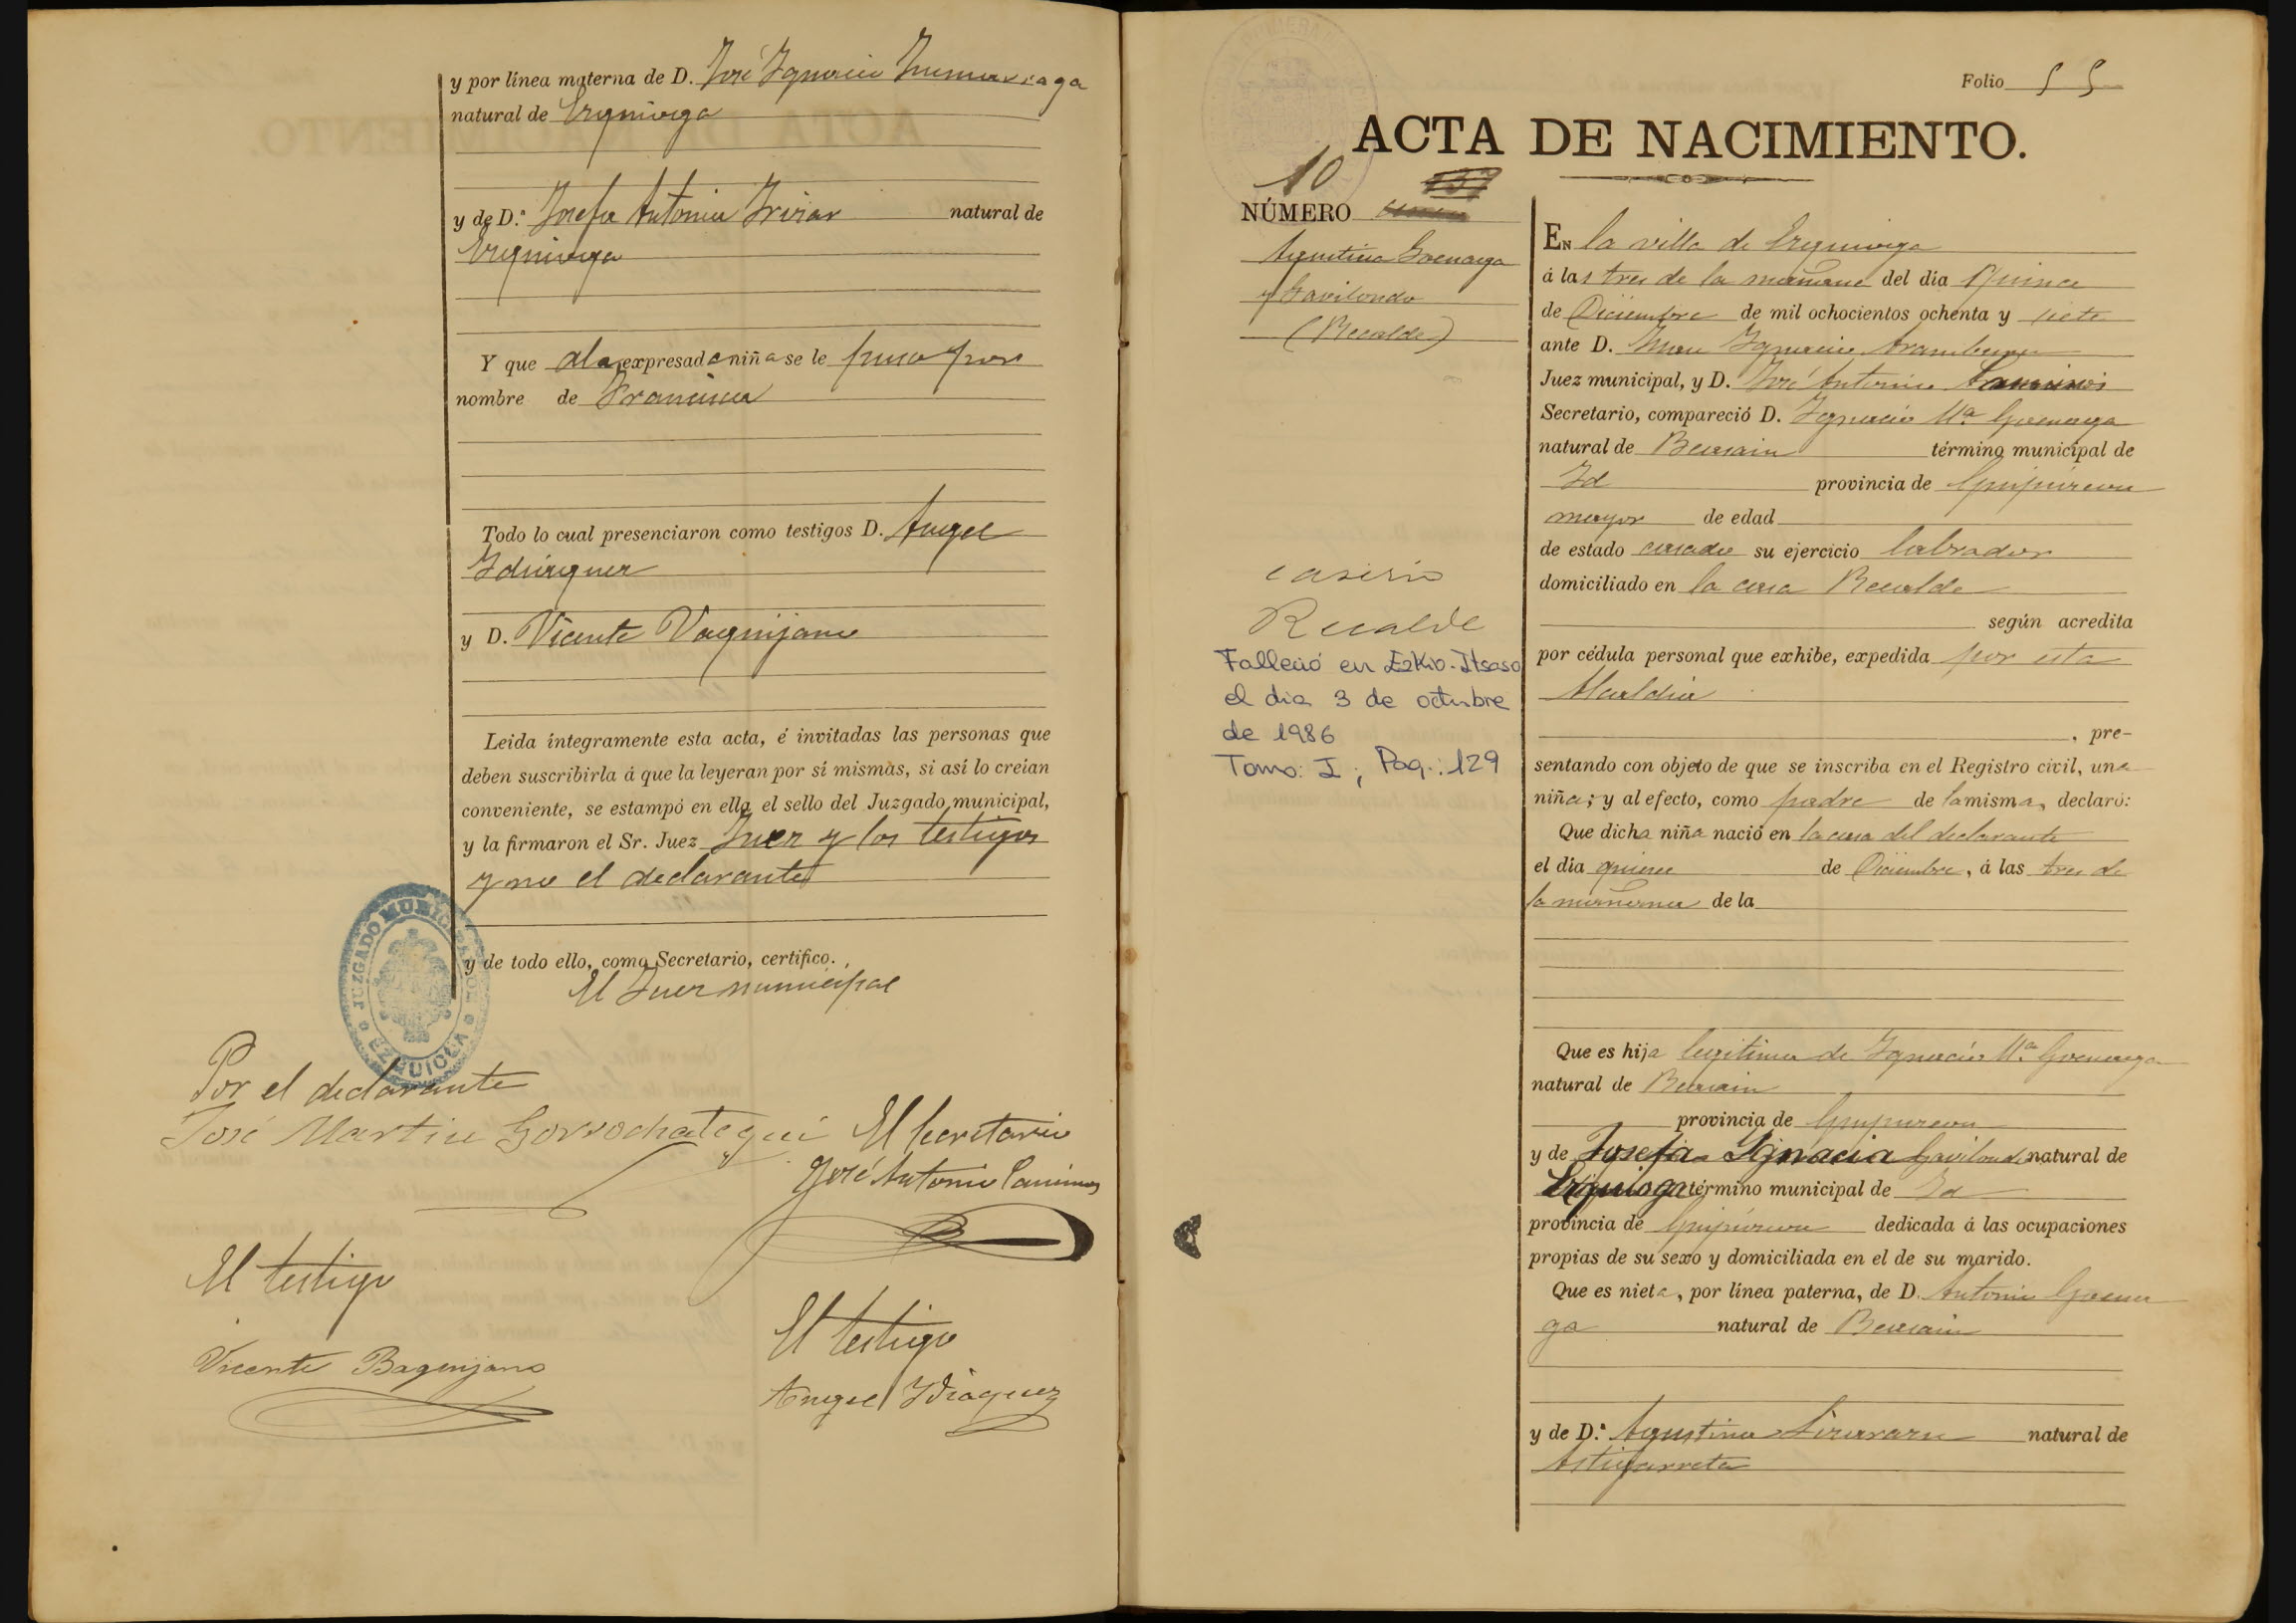 y por línea materna de D. José Ignacio Zumarraga
natural de Ezquioga
y de D.ª Josefa Antonia Irizar natural de
Ezquioga
Y que a la expresada niña se le puso por
nombre de Francisca
Todo lo cual presenciaron como testigos D. Angel
Idiaquez
y D. Vicente Vaquijano
Leida íntegramente esta acta, é invitadas las personas que
deben suscribirla á que la leyeran por sí mismas, si así lo creían
conveniente, se estampó en ella el sello del Juzgado municipal,
y la firmaron el Sr. Juez Juez y los testigos
y no el declarante
y de todo ello, como Secretario, certifico.
El Juez municipal
JUZGADO MUNICIPAL DE EZQUIOGA
Por el declarante
José Martin Gorrochategui El Secretario
José Antonio Caminos
El testigo
Vicente Baquijano
El testigo
Angel Idiaquez
Folio 55
ACTA DE NACIMIENTO.
10 137
NÚMERO
Agustina Goenaga
y Gavilondo
(Recalde)
caserio
Recalde
Falleció en Ezkio-Itsaso
el dia 3 de octubre
de 1986
Tomo: I; Pag.: 129
EN la villa de Ezquioga
á las tres de la mañana del día Quince
de Diciembre de mil ochocientos ochenta y siete
ante D. Juan Ignacio Aramburu
Juez municipal, y D. José Antonio Caminos
Secretario, compareció D. Ignacio Mª Goenaga
natural de Beasain término municipal de
Id provincia de Guipúzcoa
mayor de edad
de estado casado su ejercicio labrador
domiciliado en la casa Recalde
según acredita
por cédula personal que exhibe, expedida por esta
Alcaldia
, pre-
sentando con objeto de que se inscriba en el Registro civil, una
niña; y al efecto, como padre de la misma, declaró:
Que dicha niña nació en la casa del declarante
el día quince de Diciembre, á las tres de
la mañana de la
Que es hija legitima de Ignacio Mª Goenaga
natural de Beasain
provincia de Guipuzcoa
y de Josefa Ignacia Gavilondo natural de
Ezquioga término municipal de Id
provincia de Guipúzcoa dedicada á las ocupaciones
propias de su sexo y domiciliada en el de su marido.
Que es nieta, por línea paterna, de D. Antonio Goena
ga natural de Beasain
y de D.ª Agustina natural de
Astigarreta